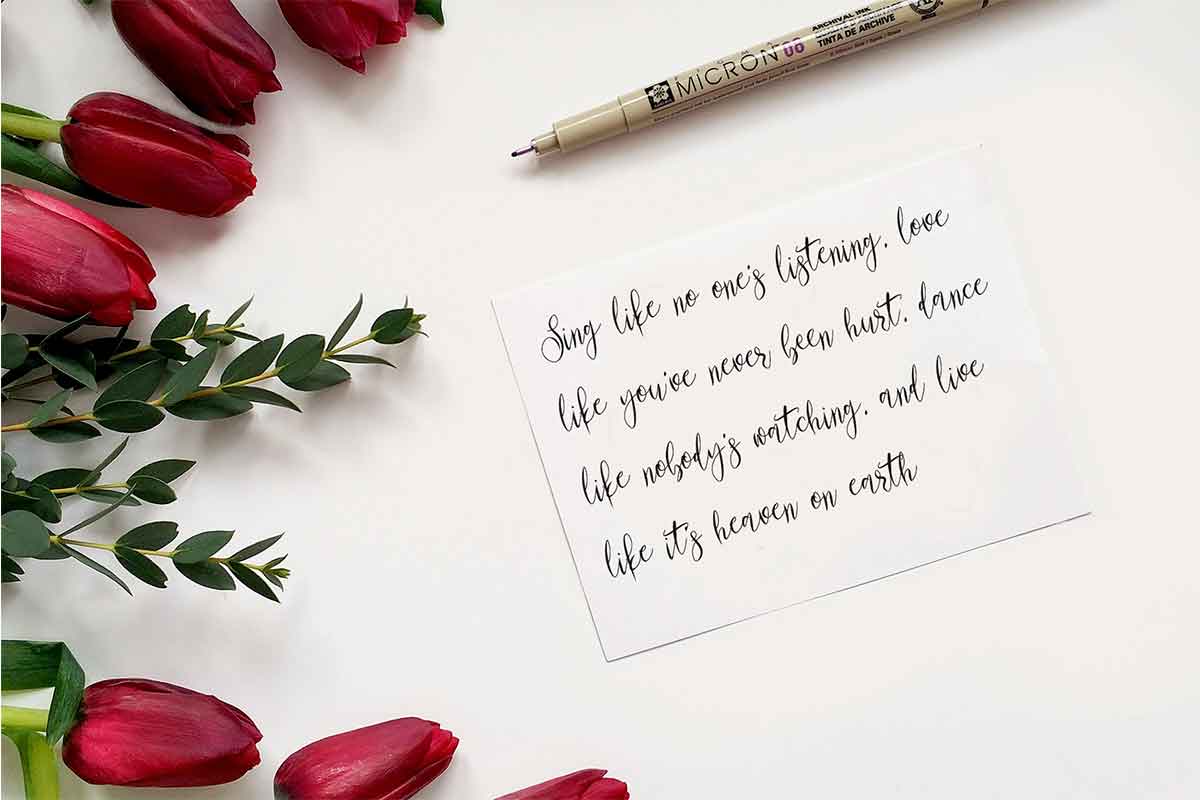 ARCHIVAL INK
MICRON 08
TINTA DE ARCHIVE
Sing like no one's listening, love
like you've never been hurt, dance
like nobody's watching, and live
like it's heaven on earth